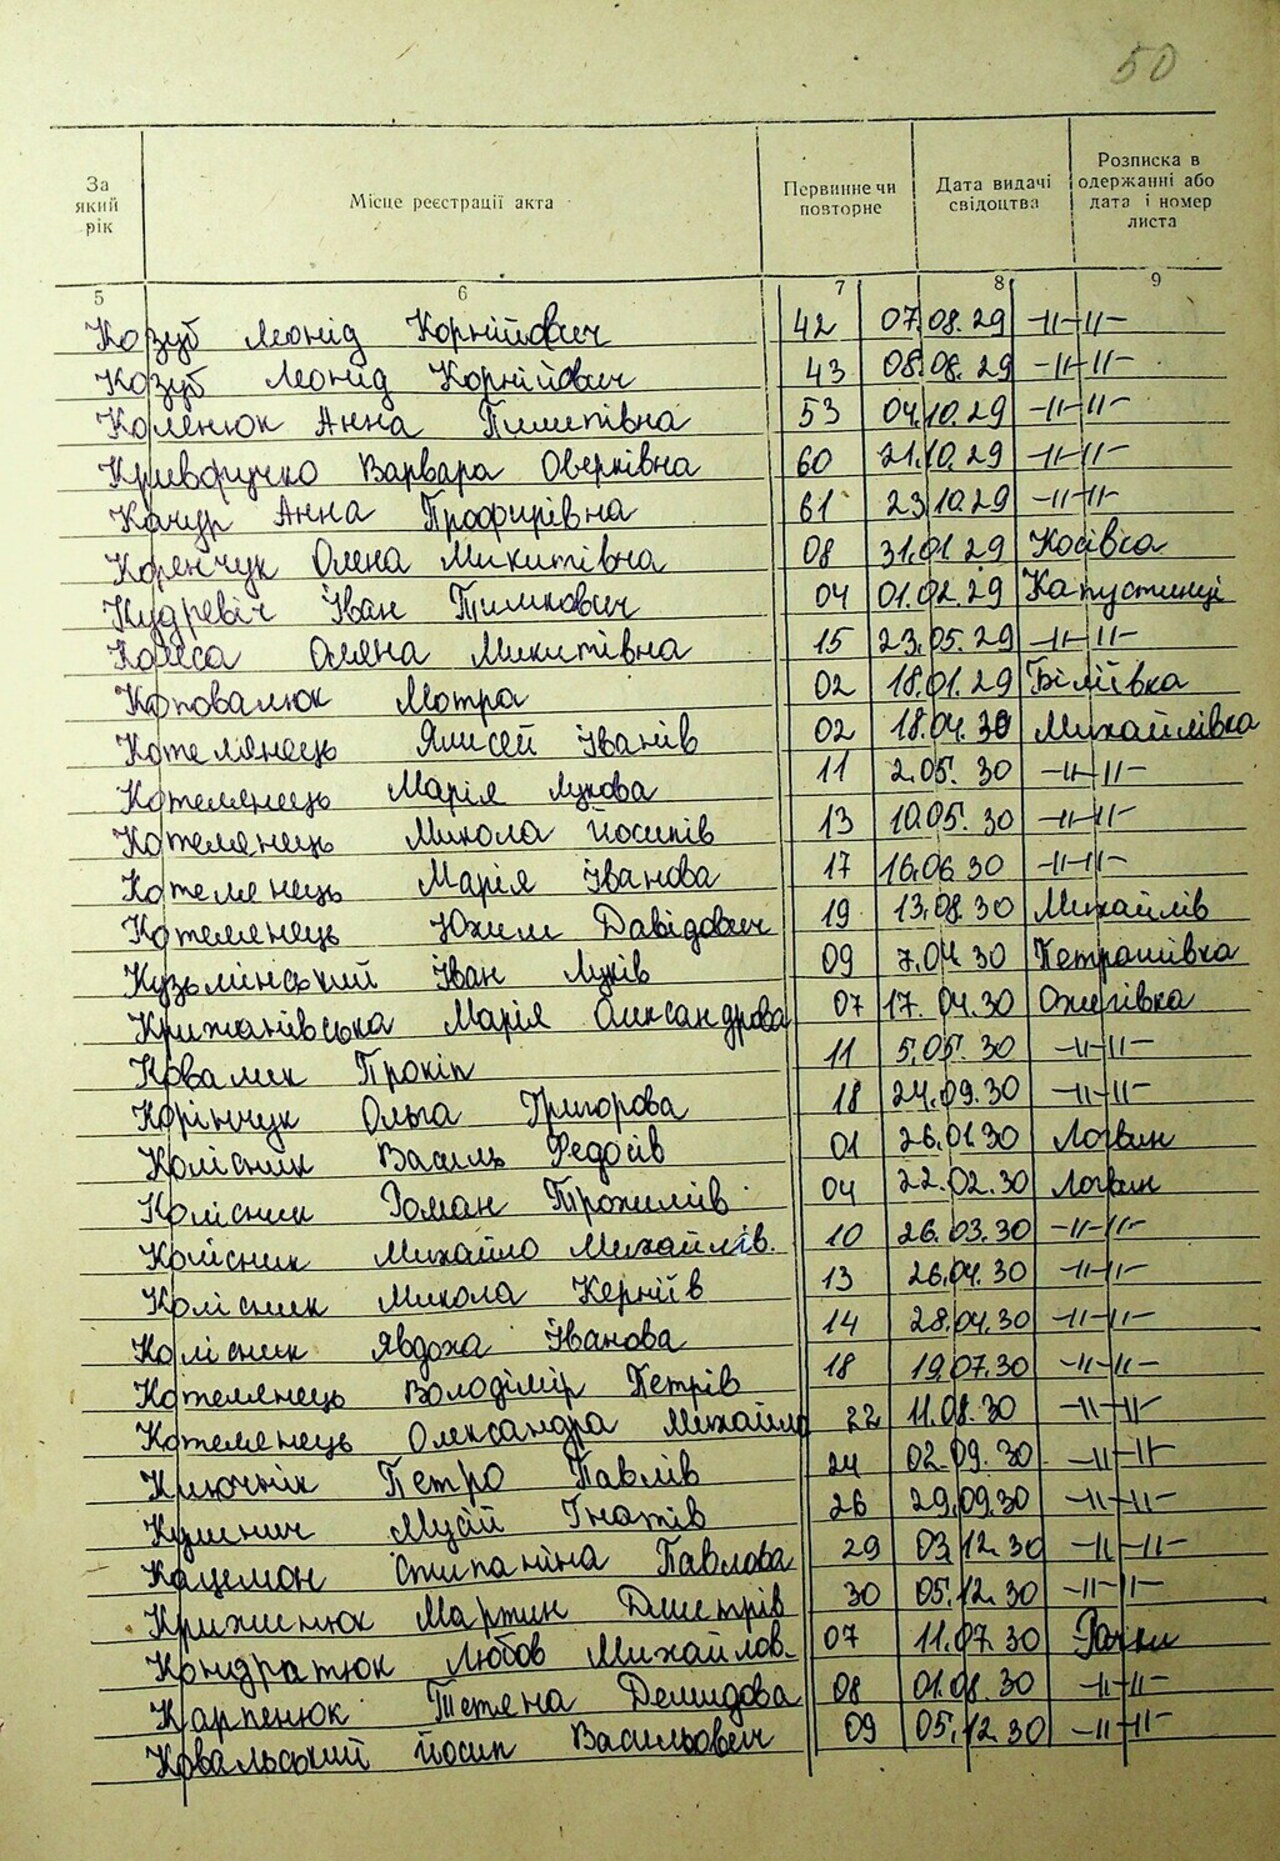 50
За який рік
Місце реєстрації акта
Первинне чи повторне
Дата видачі свідоцтва
Розписка в одержанні або дата і номер листа
5 6 7 8 9
Козуб Леонід Корнійович 42 07.08.29 -||-||-
Козуб Леонід Корнійович 43 08.08.29 -||-||-
Коленюк Анна Пилипівна 53 04.10.29 -||-||-
Криворучко Варвара Оверківна 60 21.10.29 -||-||-
Качур Анна Профирівна 61 23.10.29 -||-||-
Коренчук Олена Микитівна 08 31.01.29 Косівка
Кудревіч Іван Тимкович 04 01.02.29 Капустинці
Колеса Олена Микитівна 15 23.05.29 -||-||-
Коновалюк Мотра 02 18.01.29 Біліївка
Котелянець Ялисей Іванів 02 18.04.30 Михайлівка
Котелянець Марія Лукова 11 2.05.30 -||-||-
Котелянець Микола Йосипів 13 10.05.30 -||-||-
Котелянець Марія Іванова 17 16.06.30 -||-||-
Котелянець Юхим Давідович 19 13.08.30 Михайлів
Кузьмінський Іван Луків 09 7.04.30 Петрашівка
Крижанівська Марія Олександрова 07 17.04.30 Ожигівка
Ковалик Прокіп 11 5.05.30 -||-||-
Корінчук Ольга Григорова 18 24.09.30 -||-||-
Колісник Василь Федосів 01 26.01.30 Логвин
Колісник Роман Трохимів 04 22.02.30 Логвин
Колісник Михайло Михайлів. 10 26.03.30 -||-||-
Колісник Микола Керніїв 13 26.04.30 -||-||-
Колісник Явдоха Іванова 14 28.04.30 -||-||-
Котелянець Володімір Петрів 18 19.07.30 -||-||-
Котелянець Олександра Михайло 22 11.08.30 -||-||-
Ключнік Петро Павлів 24 02.09.30 -||-||-
Кушнич Мусій Гнатів 26 29.09.30 -||-||-
Кацемон Стипаніна Павлова 29 03.12.30 -||-||-
Криженюк Мартин Дмитрів 30 05.12.30 -||-||-
Кондратюк Любов Михайлов. 07 11.07.30
Карпенюк Тетяна Демидова 08 01.08.30 -||-||-
Ковальський Йосип Васильович 09 05.12.30 -||-||-